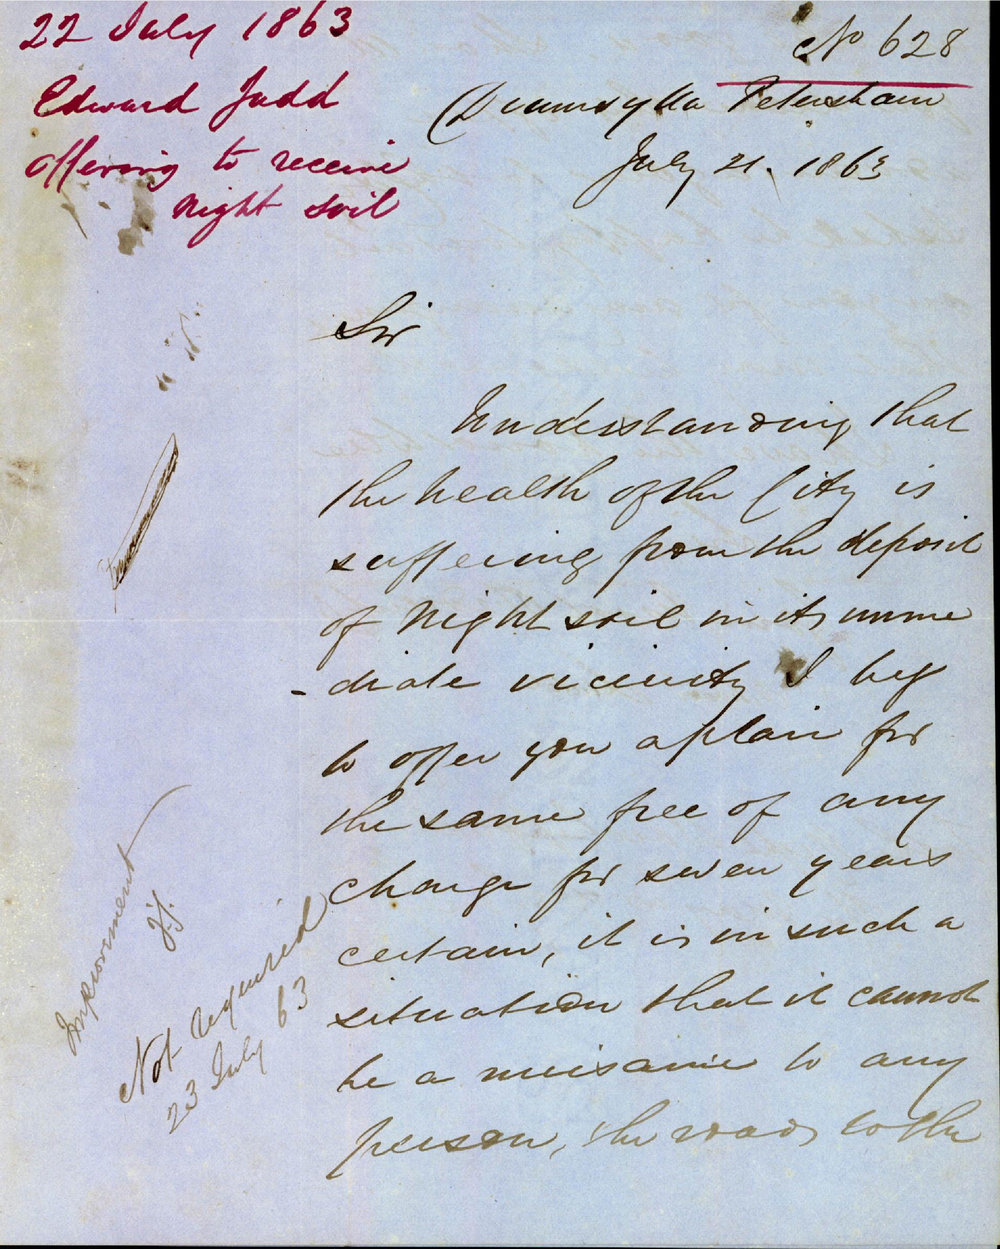 22 July 1863
Edward Judd
offering to receive
night soil
No 628
Petersham
July 21. 1863
Sir
Understanding that
the health of the City is
suffering from the deposit
of Night soil in its imme
- diate vicinity I beg
to offer you a place for
the same free of any
charge for seven years
certain, it is in such a
situation that it cannot
be a nuisance to any
person, the roads to the
Improvement
J.S.
Not required
23 July 63